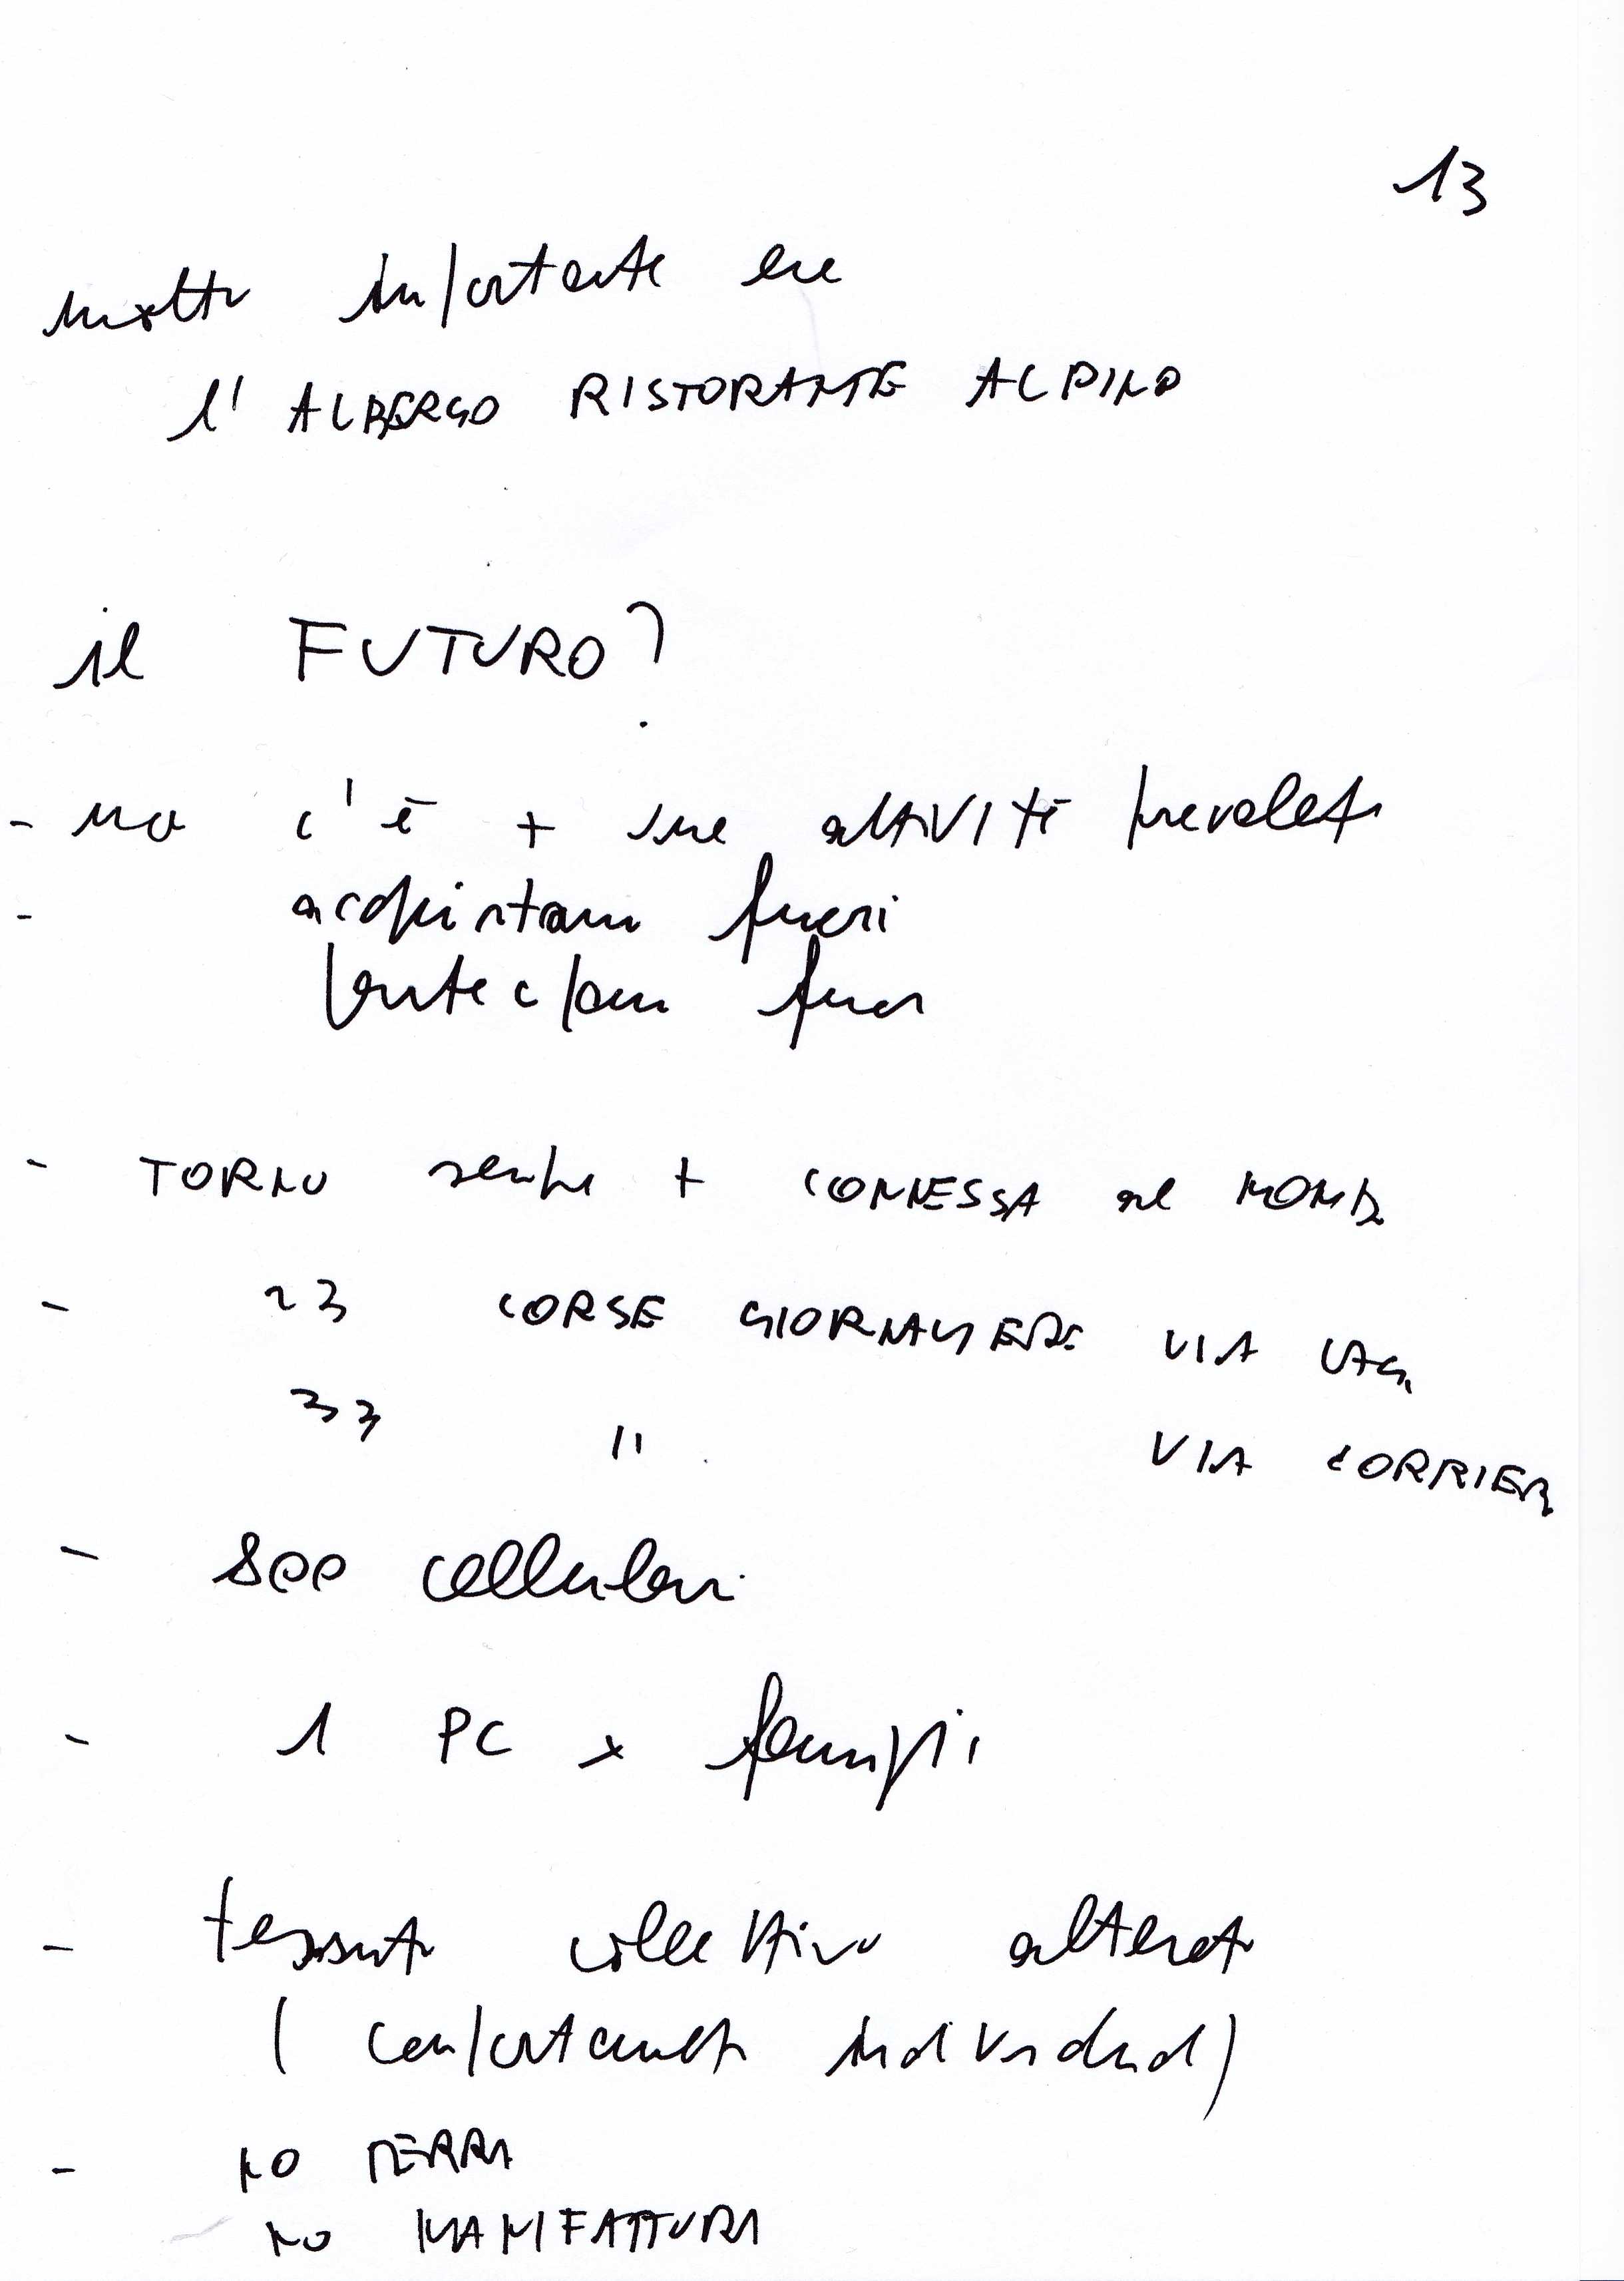 13
molto importante era
l'ALBERGO RISTORANTE ALPINO
il FUTURO?
- no c'è + una attività prevalente
- acquistano fuori
fuori
- TORNO sempre + CONNESSA al MONDO
- 23 CORSE GIORNALIERE VIA LAGO
33 " VIA CORRIERA
- 800 cellulari
- 1 PC x famiglia
- tessuto collettivo alterato
(comportamenti individuali)
- NO TERRA
NO MANIFATTURA